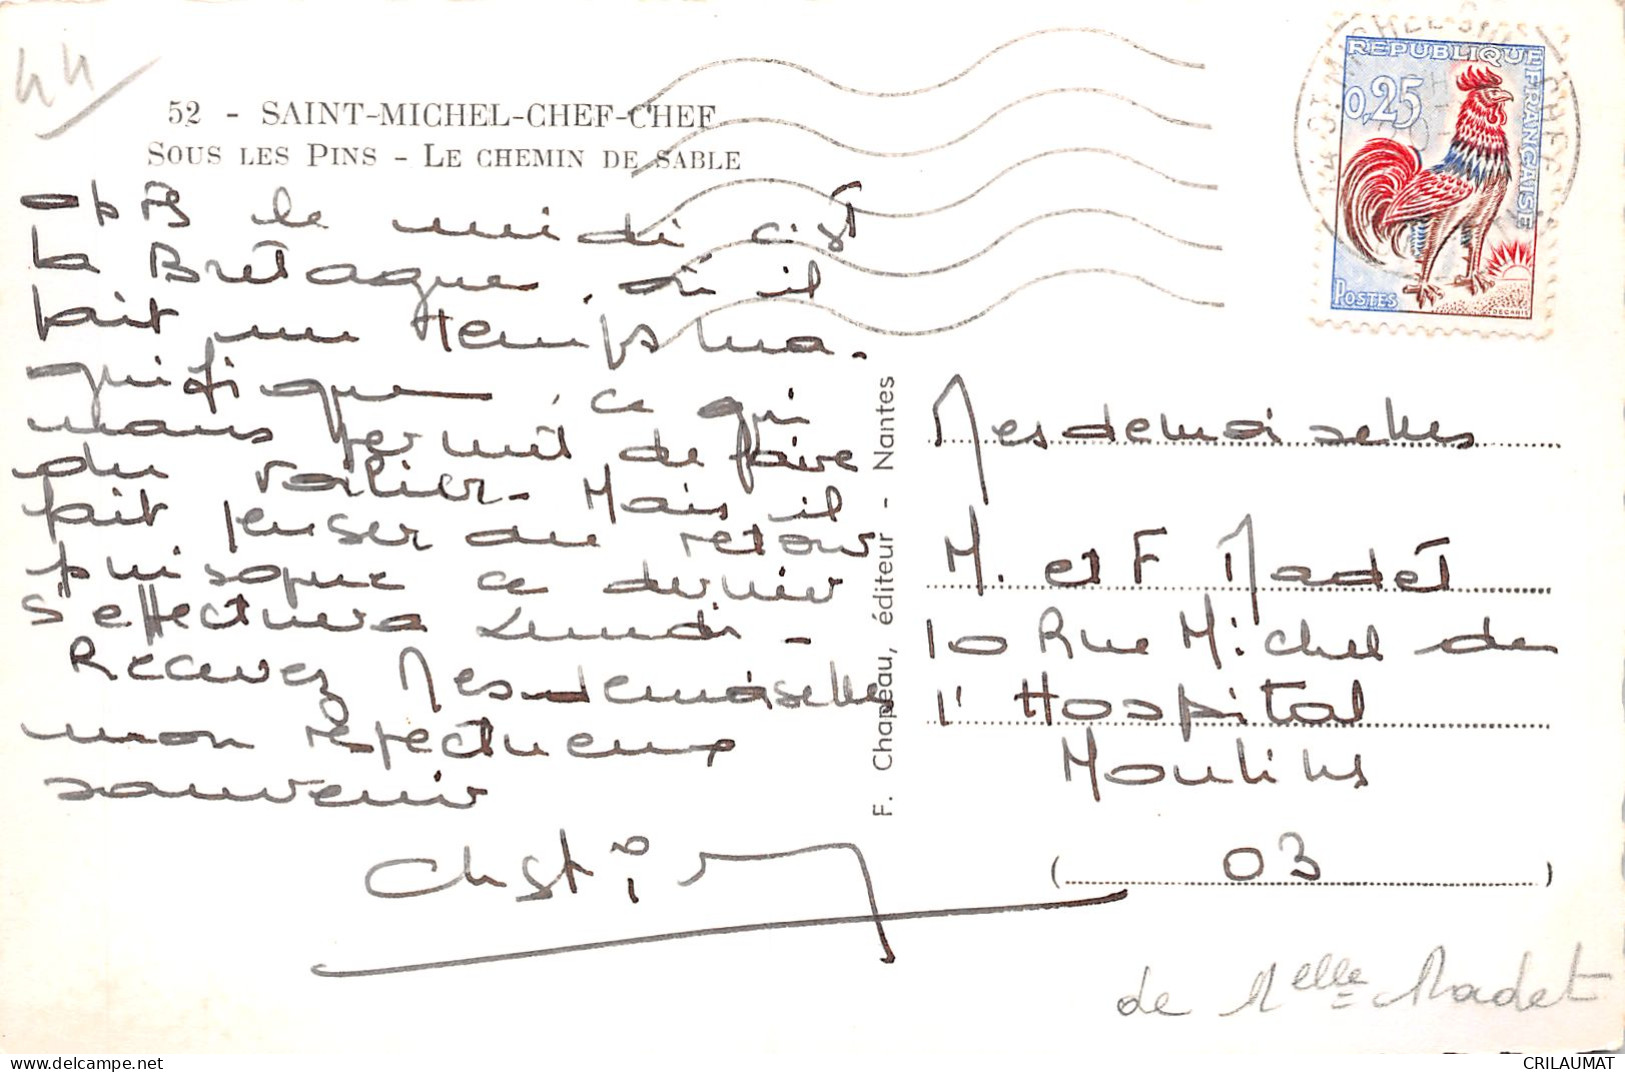 44
52 - SAINT-MICHEL-CHEF-CHEF
SOUS LES PINS - LE CHEMIN DE SABLE
après le midi c'est
la Bretagne, où il
fait un temps ma-
gnifique, ce qui
nous permet de faire
du voilier. Mais il
fait penser au retour
puisque ce dernier
s'effectuera Lundi -
Recevez Mesdemoiselles
mon respectueux
souvenir
F. Chapeau, éditeur - Nantes
REPUBLIQUE FRANÇAISE
0,25
POSTES
DECARIS
Mesdemoiselles
M. et F Madet
10 Rue Michel de
l'Hospital
Moulins
( 03 )
de Melle Madet
delcampe.net
CRILAUMAT